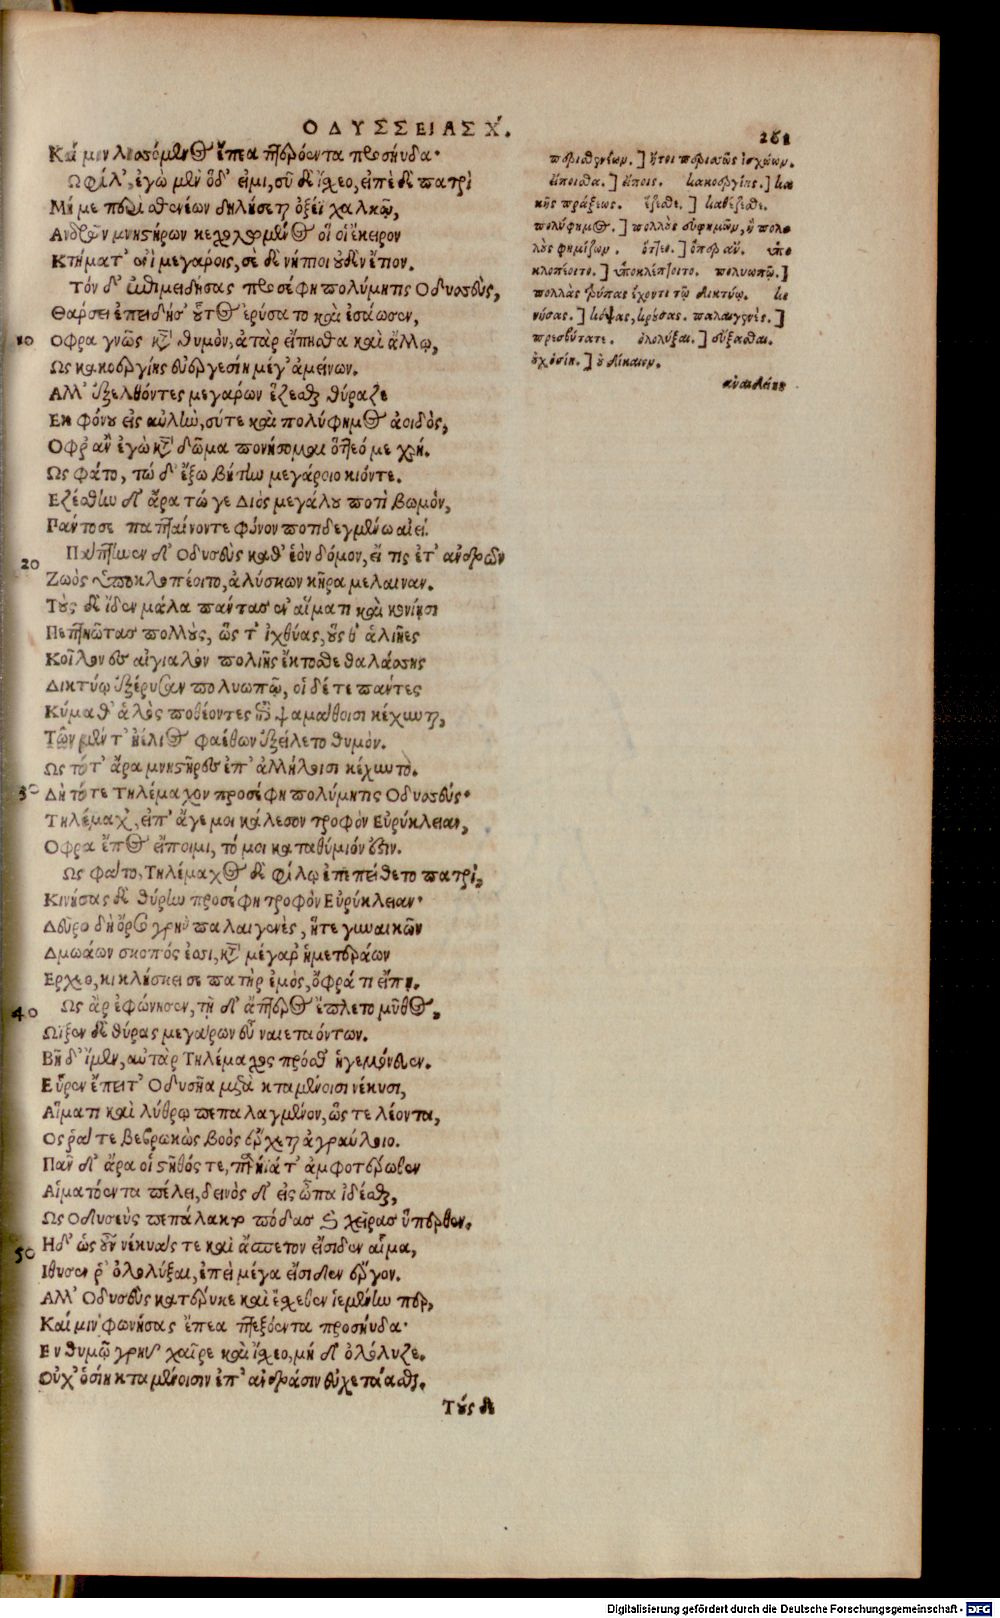 ΟΔΥΣΣΕΙΑΣ Χ.
261
Καί μιν λισσόμενος ἔπεα πτερόεντα προσηύδα·
Ω φίλ', ἐγὼ μὲν ὅδ' εἰμι, σὺ δὲ ἴσχεο, εἰπὲ δὲ πατρὶ
Μή με περισθενέων δηλήσεται ὀξέϊ χαλκῷ,
Ανδρῶν μνηστήρων κεχολωμένος οἵ οἱ ἔκειρον
Κτήματ' ἐνὶ μεγάροις, σὲ δὲ νήπιοι οὐδὲν ἔτιον.
Τόν δ' ἐπιμειδήσας προσέφη πολύμητις Οδυσσεὺς,
Θάρσει ἐπειδή σ' οὗτος ἐρύσατο καὶ ἐσάωσεν,
10 Οφρα γνῷς κατὰ θυμὸν, ἀτὰρ εἴπῃσθα καὶ ἄλλῳ,
Ως κακοεργίης εὐεργεσίη μέγ' ἀμείνων.
Αλλ' ἐξελθόντες μεγάρων ἕζεσθε θύραζε
Εκ φόνου εἰς αὐλὴν, σύ τε καὶ πολύφημος ἀοιδὸς,
Οφρ' ἂν ἐγὼ κατὰ δῶμα πονήσομαι ὅττεό με χρή.
Ως φάτο, τώ δ' ἔξω βήτην μεγάροιο κιόντε.
Εζέσθην δ' ἄρα τώ γε Διὸς μεγάλου ποτὶ βωμὸν,
Πάντοσε παπταίνοντε φόνον ποτιδεγμένω αἰεί.
Πάπτηνεν δ' Οδυσεὺς καθ' ἑὸν δόμον, εἴ τις ἔτ' ἀνδρῶν
20 Ζωὸς ὑποκλοπέοιτο, ἀλύσκων κῆρα μέλαιναν.
Τοὺς δὲ ἴδεν μάλα πάντας ἐν αἵματι καὶ κονίῃσι
Πεπτηῶτας πολλοὺς, ὥς τ' ἰχθύας, οὕς θ' ἁλιῆες
Κοῖλον ἐς αἰγιαλὸν πολιῆς ἔκτοσθε θαλάσσης
Δικτύῳ ἐξέρυσαν πολυωπῷ, οἱ δέ τε πάντες
Κύμαθ' ἁλὸς ποθέοντες ἐπὶ ψαμάθοισι κέχυνται,
Τῶν μέν τ' ἠέλιος φαέθων ἐξείλετο θυμὸν.
Ως τότ' ἄρα μνηστῆρες ἐπ' ἀλλήλοισι κέχυντο.
30 Δὴ τότε Τηλέμαχον προσέφη πολύμητις Οδυσσεύς·
Τηλέμαχ', εἰπ' ἄγε μοι κάλεσον τροφὸν Εὐρύκλειαν,
Οφρα ἔπος εἴποιμι, τό μοι καταθύμιόν ἐστιν.
Ως φάτο, Τηλέμαχος δὲ φίλῳ ἐπεπείθετο πατρί,
Κινήσας δὲ θύρην προσέφη τροφὸν Εὐρύκλειαν·
Δεῦρο δὴ ὄρσο γρηῢ παλαιγενὲς, ἥτε γυναικῶν
Δμωάων σκοπός ἐσσι, κατὰ μέγαρ' ἡμετεράων
Ερχεο, κικλήσκει σε πατὴρ ἐμὸς, ὄφρά τι εἴπῃ.
40 Ως ἄρ' ἐφώνησεν, τῇ δ' ἄπτερος ἔπλετο μῦθος,
Ωϊξεν δὲ θύρας μεγάρων εὖ ναιεταόντων.
Βῆ δ' ἴμεν, αὐτὰρ Τηλέμαχος πρόσθ' ἡγεμόνευεν.
Εὗρεν ἔπειτ' Οδυσῆα μετὰ κταμένοισι νέκυσι,
Αἵματι καὶ λύθρῳ πεπαλαγμένον, ὥς τε λέοντα,
Ος ῥά τε βεβρωκὼς βοὸς ἔρχεται ἀγραύλοιο.
Πᾶν δ' ἄρα οἱ στῆθός τε, παρήϊά τ' ἀμφοτέρωθεν
Αἱματόεντα πέλει, δεινὸς δ' εἰς ὦπα ἰδέσθαι,
Ως Οδυσεὺς πεπάλακτο πόδας καὶ χεῖρας ὕπερθεν.
50 Ηδ' ὡς οὖν νέκυάς τε καὶ ἄσπετον εἴσιδεν αἷμα,
Ιθυσεν ῥ' ὀλολύξαι, ἐπεὶ μέγα εἴσιδεν ἔργον.
Αλλ' Οδυσεὺς κατέρυκε καὶ ἔσχεθεν ἱεμένην περ,
Καί μιν φωνήσας ἔπεα πτερόεντα προσηύδα·
Εν θυμῷ γρηῢ χαῖρε καὶ ἴσχεο, μὴ δ' ὀλόλυζε.
Οὐχ' ὁσίη κταμένοισιν ἐπ' ἀνδράσιν εὐχετάασθαι.
Τούς δὲ
περισθενέων.] ἤτοι περισσῶς ἰσχύων.
εἴπησθα.] εἴποις. κακοεργίης.] κα
κῆς πράξεως. ἕζεσθε.] καθέζεσθε.
πολύφημος.] πολλὰς εὐφημῶν, ἢ πολ
λὰς φημίζων. ὅττεο.] ὅπερ ἄν. ὑπο
κλοπέοιτο.] ὑποκλέπτοιτο. πολυωπῷ.]
πολλὰς τρύπας ἔχοντι τῷ δικτύῳ. κι
νήσας.] κόψας, κρούσας. παλαιγενὲς.]
πρεσβύτατε. ὀλολύξαι.] εὔξασθαι.
οὐχ ὁσίη.] οὐ δίκαιον.